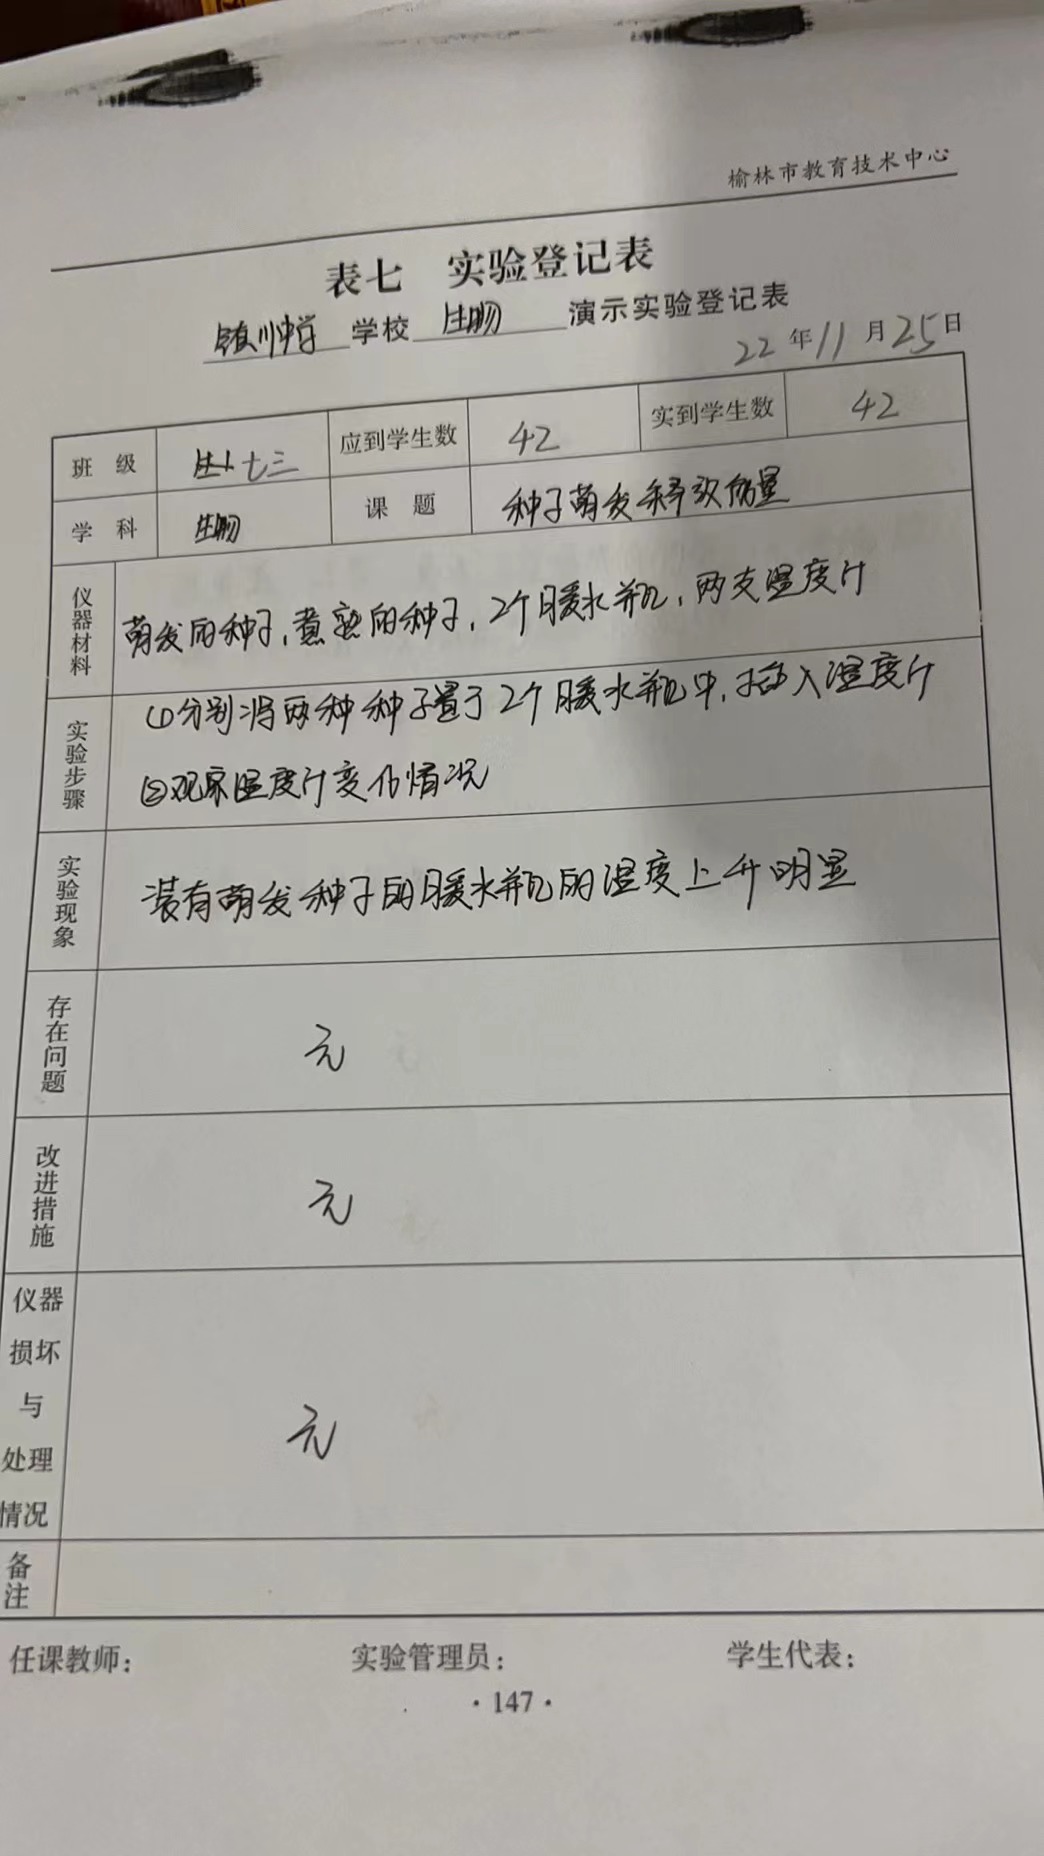 榆林市教育技术中心
表七 实验登记表
镇川中学 学校 生物 演示实验登记表
22年11月25日
班级 七三 应到学生数 42 实到学生数 42
学科 生物 课题 种子萌发释放能量
仪器材料 萌发的种子,煮熟的种子,2个暖水瓶,两支温度计
实验步骤 ①分别将两种种子置于2个暖水瓶中,插入温度计
②观察温度计变化情况
实验现象 装有萌发种子的暖水瓶的温度上升明显
存在问题 无
改进措施 无
仪器损坏与处理情况 无
备注
任课教师: 实验管理员: 学生代表:
·147·